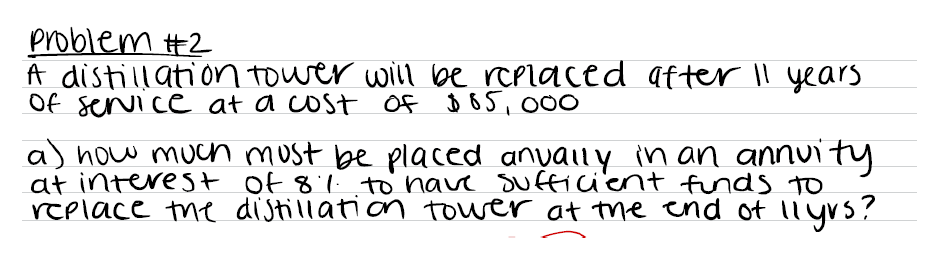 Problem #2
A distillation tower will be replaced after 11 years
of service at a cost of $85,000
a) how much must be placed anually in an annuity
at interest of 8% to have sufficient funds to
replace the distillation tower at the end of 11yrs?